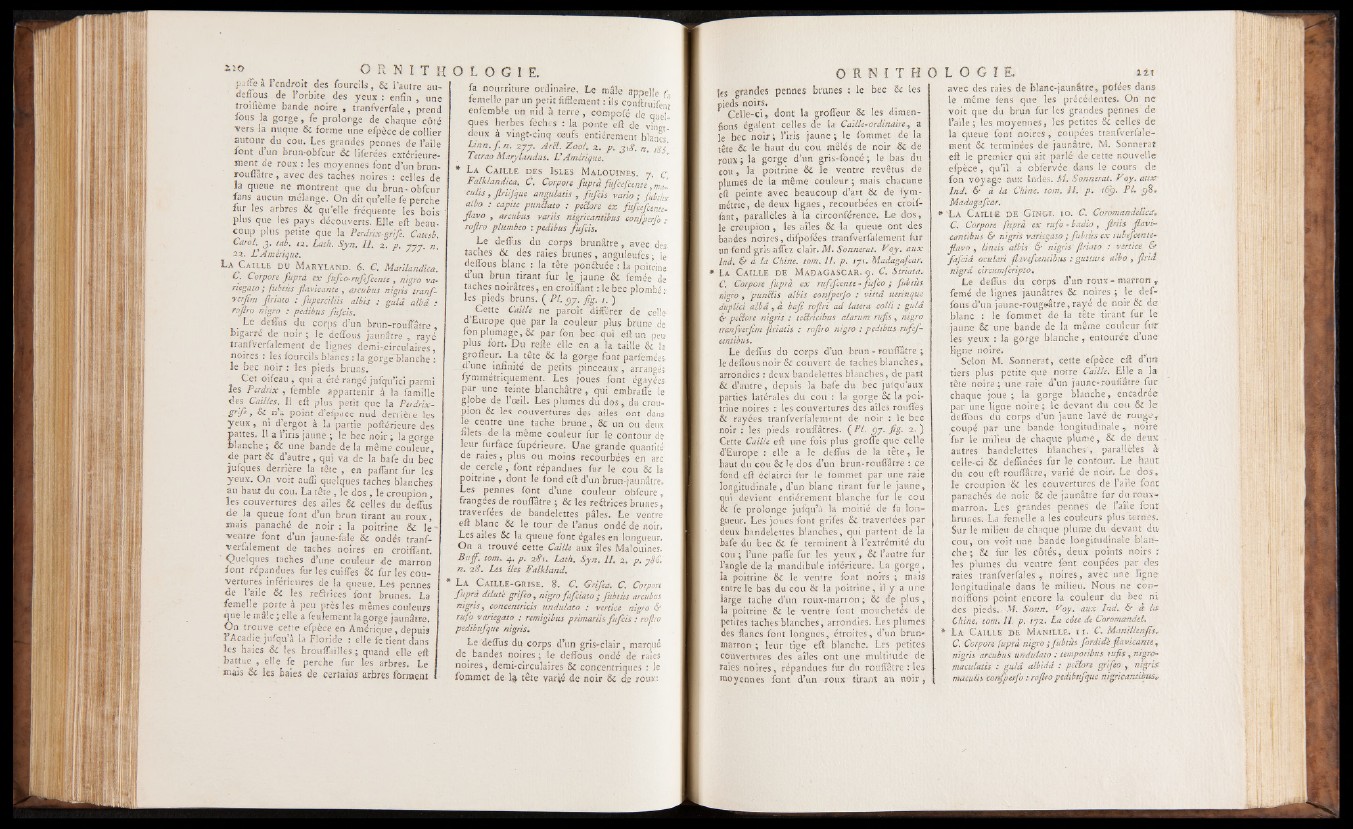 220 ORNITHOLOGIE.
passe à l'endroit des sourcils, & l'autre au-
dessous de l'orbite des yeux : enfin, une
troisième bande noire, transversale, prend
sous la gorge, se prolonge de chaque côté
vers la nuque & forme une espèce de collier
autour du cou. Les grandes pennes de l'aile
sont d'un brun-obscur & liserées extérieure-
ment de roux : les moyennes sont d'un brun-
roussâtre, avec des taches noires : celles de
la queue ne montrent que du brun-obscur
sans aucun mélange. On dit qu'elle se perche
sur les arbres & qu'elle fréquente les bois
plus que les pays découverts. Elle est beau-
coup plus petite que la Perdrix-grise. Catesb.
Carol. 3. tab. 12. Lath. Syn. II. 2. p. 777. n.
22. L'Amérique.
LA CAILLE DU MARYLAND. 6. C. Marilandica.
C. Corpore suprà ex fusco-rufescente, nigro va-
riegato ; subtùs flavicante, arcubus nigris trans-
versim striato : superciliis albis : gulâ albâ :
rostro nigro : pedibus fuscis.
Le dessus du corps d'un brun-roussâtre,
bigarré de noir ; le dessous jaunâtre, rayé
transversalement de lignes demi-circulaires,
noires : les sourcils blancs : la gorge blanche :
le bec noir : les pieds bruns.
Cet oiseau, qui a été rangé jusqu'ici parmi
les Perdrix, semble appartenir à la famille
des Cailles. Il est plus petit que la Perdrix-
grise, & n'a point d'espace nud derrière les
yeux, ni d'ergot à la partie postérieure des
pattes. Il a l'iris jaune ; le bec noir ; la gorge
blanche ; & une bande de la même couleur,
de part & d'autre, qui va de la base du bec
jusques derrière la tête, en passant sur les
yeux. On voit aussi quelques taches blanches
au haut du cou. La tête, le dos, le croupion,
les couvertures des ailes & celles du dessus
de la queue sont d'un brun tirant au roux,
mais panaché de noir : la poitrine & le
ventre sont d'un jaune-sale & ondés trans-
versalement de taches noires en croissant.
Quelques taches d'une couleur de marron
sont répandues sur les cuisses & sur les cou-
vertures inférieures de la queue. Les pennes
de l'aile & les rectrices sont brunes. La
femelle porte à peu près les mêmes couleurs
que le mâle ; elle a seulement la gorge jaunâtre.
On trouve cette espèce en Amérique, depuis
l'Acadie jusqu'à la Floride : elle se tient dans
les haies & les broussailles ; quand elle est
battue, elle se perche sur les arbres. Le
mais & les baies de certains arbres forment
sa nourriture ordinaire. Le mâle appelle sa
femelle par un petit sifflement : ils construisent
ensemble un nid à terre, composé de quel-
ques herbes sèches : la ponte est de vingt-
deux à vingt-cinq œufs entièrement blancs.
Linn. s. n. 277. Arct. Zool. 2. p. 318. n. 185.
Tetrao Marylandus. L'Amérique.
* LA CAILLE DES ISLES MALOUINES. 7. C.
Falklandica. C. Corpore suprà fuscescente, ma-
culis, striisque angulatis, fuscis vario ; subtùs
albo : capite punctato : pectore ex fuscescente-
flavo, arcubus variis nigricantibus consperso :
rostro plumbeo : pedibus fuscis.
Le dessus du corps brunâtre, avec des
taches & des raies brunes, anguleuses ; le
dessous blanc : la tête ponctuée : la poitrine
d'un brun tirant sur le jaune & semée de
taches noirâtres, en croissant : le bec plombé :
les pieds bruns. (Pl. 97. fig. 1.)
Cette Caille ne paroît différer de celle
d'Europe que par la couleur plus brune de
son plumage, & par son bec qui est un peu
plus fort. Du reste elle en a la taille & la
grosseur. La tête & la gorge sont parsemées
d'une infinité de petits pinceaux, arrangés
symmétriquement. Les joues sont égayées
par une teinte blanchâtre, qui embrasse le
globe de l'œil. Les plumes du dos, du crou-
pion & les couvertures des ailes ont dans
le centre une tache brune, & un ou deux
filets de la même couleur sur le contour de
leur surface supérieure. Une grande quantité
de raies, plus ou moins recourbées en arc
de cercle, sont répandues sur le cou & la
poitrine, dont le fond est d'un brun-jaunâtre.
Les pennes sont d'une couleur obscure,
frangées de roussâtre ; & les rectrices brunes,
traversées de bandelettes pâles. Le ventre
est blanc & le tour de l'anus ondé de noir.
Les ailes & la queue sont égales en longueur.
On a trouvé cette Caille aux îles Malouines.
Buff. tom. 4. p. 281. Lath. Syn. II. 2. p. 786.
n. 28. Les îles Falkland.
* LA CAILLE-GRISE. 8. C. Grisea. C. Corpore
suprà dilutè griseo, nigro fasciato ; subtùs arcubus
nigris, concentricis undulato : vertice nigro &
rufo variegato : remigibus primariis fuscis : rostro
pedibusque nigris.
Le dessus du corps d'un gris-clair, marqué
de bandes noires ; le dessous ondé de raies
noires, demi-circulaires & concentriques : le
sommet de la tête varié de noir & de roux :
ORNITHOLOGIE. 221
les grandes pennes brunes : le bec & les
pieds noirs.
Celle-ci, dont la grosseur & les dimen-
sions égalent celles de la Caille-ordinaire, a
le bec noir ; l'iris jaune ; le sommet de la
tête & le haut du cou mêlés de noir & de
roux ; la gorge d'un gris-foncé ; le bas du
cou, la poitrine & le ventre revêtus de
plumes de la même couleur ; mais chacune
est peinte avec beaucoup d'art & de sym-
métrie, de deux lignes, recourbées en crois-
sant, parallèles à la circonférence. Le dos,
le croupion, les ailes & la queue ont des
bandes noires, disposées transversalement sur
un fond gris assez clair. M. Sonnerat. Voy. aux
Ind. & à la Chine. tom. II. p. 171. Madagascar.
* LA CAILLE DE MADAGASCAR. 9. C. Striata.
C. Corpore suprà ex rufescente-fusco ; subtùs
nigro, punctis albis consperso : vittâ utrinque
duplici albâ, à basi rostri ad latera colli : gulâ
& pectore nigris : tectricibus alarum rufis, nigro
transversim striatis : rostro nigro : pedibus rufes-
centibus.
Le dessus du corps d'un brun-roussâtre ;
le dessous noir & couvert de taches blanches,
arrondies : deux bandelettes blanches, de part
& d'autre, depuis la base du bec jusqu'aux
parties latérales du cou : la gorge & la poi-
trine noires : les couvertures des ailes rousses
& rayées transversalement de noir : le bec
noir : les pieds roussâtres. (Pl. 97. fig. 2.)
Cette Caille est une fois plus grosse que celle
d'Europe : elle a le dessus de la tête, le
haut du cou & le dos d'un brun-roussâtre : ce
fond est éclairci sur le sommet par une raie
longitudinale, d'un blanc tirant sur le jaune,
qui devient entièrement blanche sur le cou
& se prolonge jusqu'à la moitié de sa lon-
gueur. Les joues sont grises & traversées par
deux bandelettes blanches, qui partent de la
base du bec & se terminent à l'extrémité du
cou ; l'une passe sur les yeux, & l'autre sur
l'angle de la mandibule inférieure. La gorge,
la poitrine & le ventre sont noirs ; mais
entre le bas du cou & la poitrine, il y a une
large tache d'un roux-marron ; & de plus,
la poitrine & le ventre sont mouchetés de
petites taches blanches, arrondies. Les plumes
des flancs sont longues, étroites, d'un brun-
marron ; leur tige est blanche. Les petites
couvertures des ailes ont une multitude de
raies noires, répandues sur du roussâtre : les
moyennes sont d'un roux tirant au noir,
avec des raies de blanc-jaunâtre, posées dans
le même sens que les précédentes. On ne
voit que du brun sur les grandes pennes de
l'aile ; les moyennes, les petites & celles de
la queue sont noires, coupées transversale-
ment & terminées de jaunâtre. M. Sonnerat
est le premier qui ait parlé de cette nouvelle
espèce, qu'il a observée dans le cours de
son voyage aux Indes. M. Sonnerat. Voy. aux
Ind. & à la Chine. tom. II. p. 169. Pl. 98.
Madagascar.
* LA CAILLE DE GINGI. 10. C. Coromandelica.
C. Corpore suprà ex rufo-badio, striis flavi-
cantibus & nigris variegato ; subtùs ex rubescente-
flavo, lineis albis & nigris striato : vertice &
fasciâ oculari flavescentibus : gutture albo, striâ
nigrâ circumscripto.
Le dessus du corps d'un roux-marron,
semé de lignes jaunâtres & noires ; le des-
sous d'un jaune-rougeâtre, rayé de noir & de
blanc : le sommet de la tête tirant sur le
jaune & une bande de la même couleur sur
les yeux : la gorge blanche, entourée d'une
ligne noire.
Selon M. Sonnerat, cette espèce est d'un
tiers plus petite que notre Caille. Elle a la
tête noire ; une raie d'un jaune-roussâtre sur
chaque joue ; la gorge blanche, encadrée
par une ligne noire ; le devant du cou & le
dessous du corps d'un jaune lavé de rouge,
coupé par une bande longitudinale, noire
sur le milieu de chaque plume, & de deux
autres bandelettes blanches, parallèles à
celle-ci & dessinées sur le contour. Le haut
du cou est roussâtre, varié de noir. Le dos,
le croupion & les couvertures de l'aile sont
panachés de noir & de jaunâtre sur du roux-
marron. Les grandes pennes de l'aile sont
brunes. La femelle a les couleurs plus ternes.
Sur le milieu de chaque plume du devant du
cou, on voit une bande longitudinale blan-
che ; & sur les côtés, deux points noirs :
les plumes du ventre sont coupées par des
raies transversales, noires, avec une ligne
longitudinale dans le milieu. Nous ne con-
noissons point encore la couleur du bec ni
des pieds. M. Sonn. Voy. aux Ind. & à la
Chine. tom. II. p. 172. La côte de Coromandel.
* LA CAILLE DE MANILLE. 11. C. Manillensis.
C. Corpore suprà nigro ; subtùs sordidè flavicante,
nigris arcubus undulato : temporibus rufis, nigro-
maculatis : gulâ albidâ : pectore griseo, nigris
maculis consperso : rostro pedibusque nigricantibus.